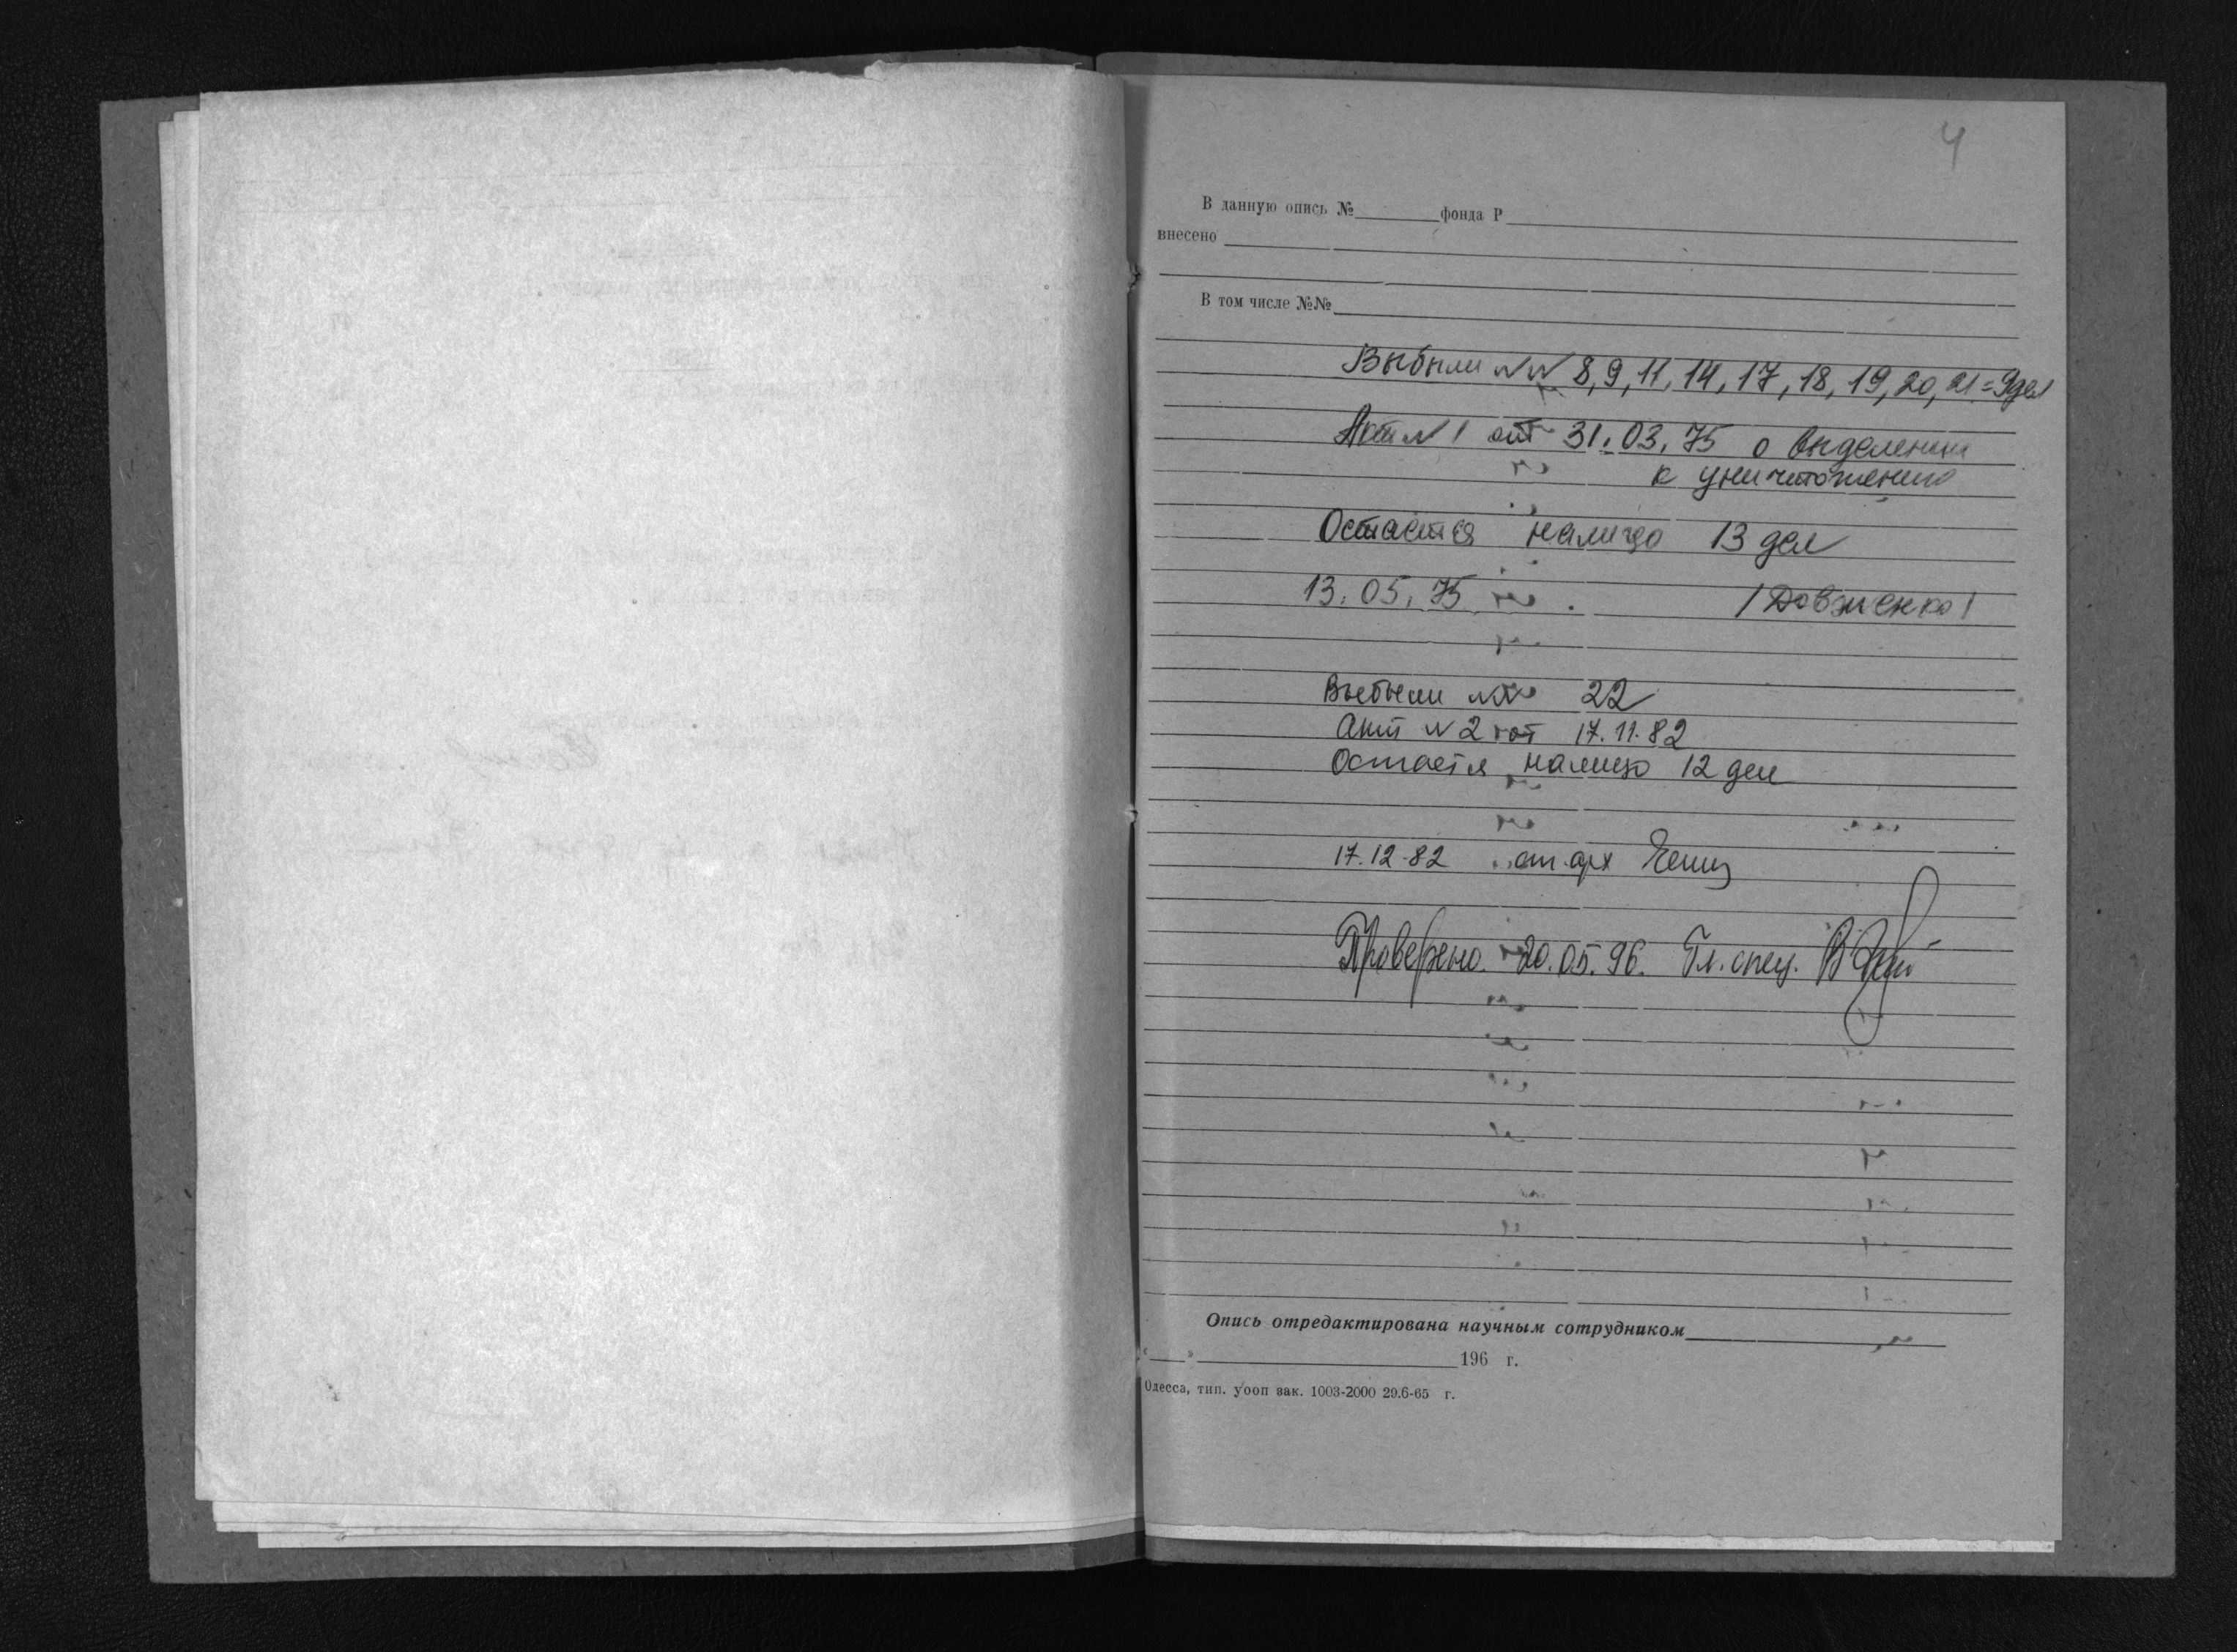 4
В данную опись №________фонда Р
внесено
В том числе №№
Выбыли №№ 8, 9, 11, 14, 17, 18, 19, 20, 21 = 9 дел
Акт № 1 от 31.03.75 о выделении
к уничтожению
Остается налицо 13 дел
13.05.75 /Довженко/
Выбыли №№ 22
Акт № 2 от 17.11.82
Остается налицо 12 дел
17.12.82 ст. арх
Проверено. 20.05.96. Гл. спец.
Опись отредактирована научным сотрудником
"___"____________196 г.
Одесса, тип. уооп зак. 1003-2000 29.6-65 г.